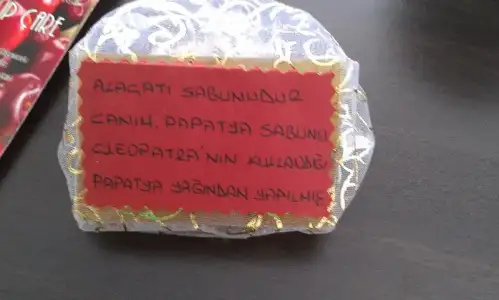 P CARE
ALAÇATI SABUNUDUR
CANIM. PAPATYA SABUNU
CLEOPATRA'NIN KULLANDIĞI
PAPATYA YAĞINDAN YAPILMIŞ